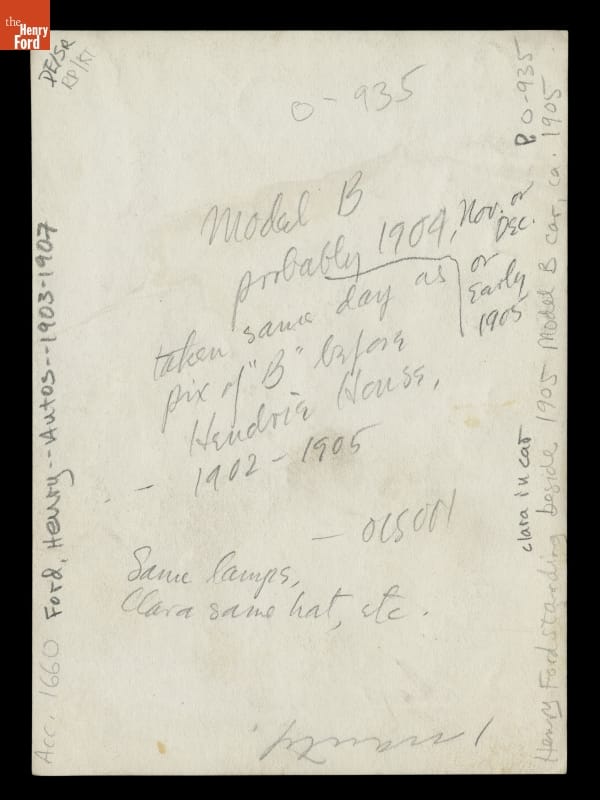 the
Henry
Ford
DE/SR
RP/KT
O-935
Model B
probably 1904, Nov. or Dec.
or Early 1905
taken same day as
pix of "B" before
Hendrie House,
- 1902 - 1905
- OLSON
Same lamps,
Clara same hat, etc.
Acc. 1660 Ford, Henry--Autos--1903-1907
clara in car
P. O-935
Henry Ford standing beside 1905 Model B car, ca. 1905.